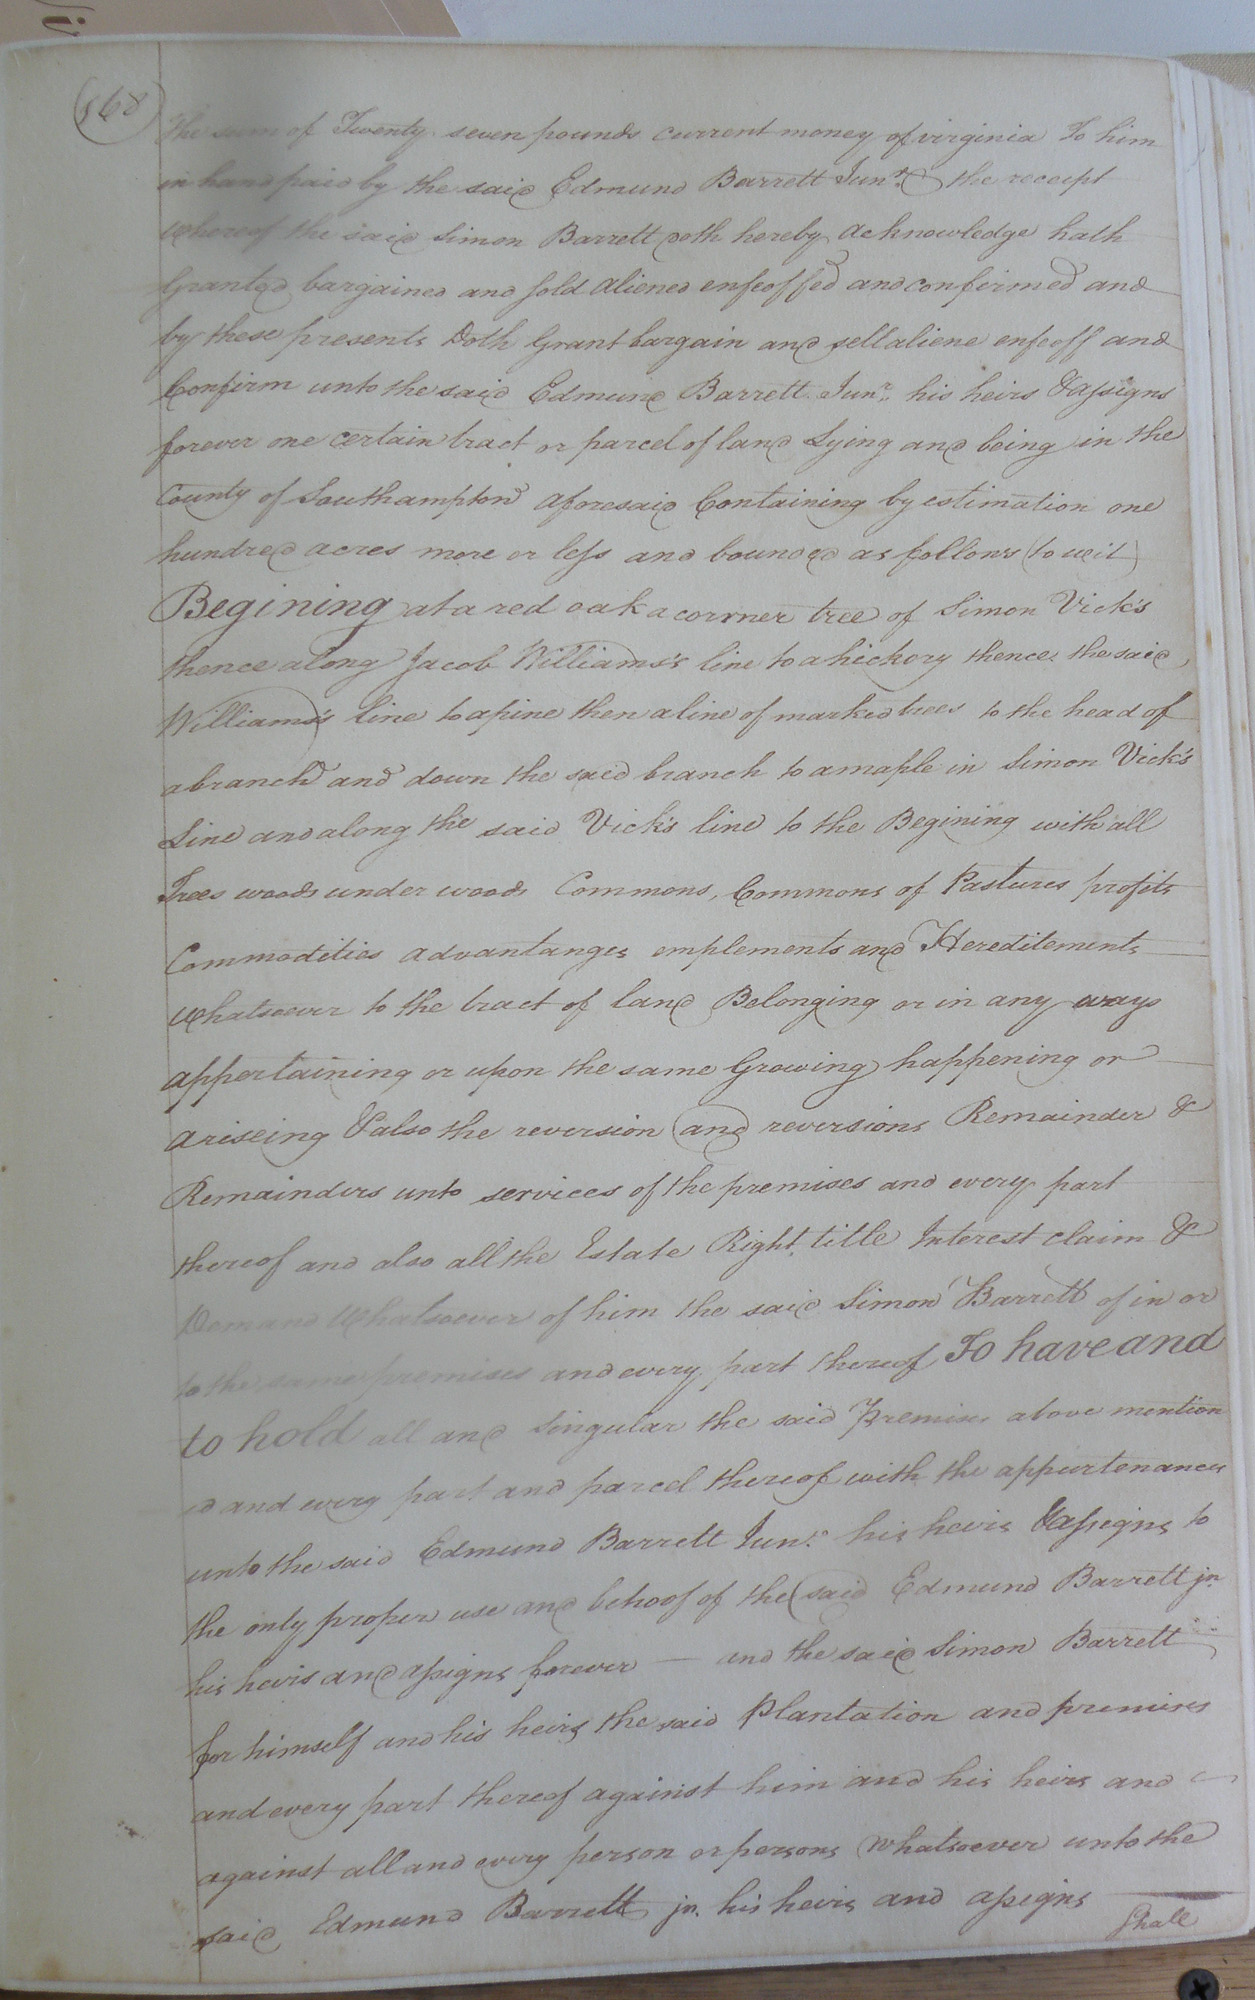 568
The sum of Twenty seven pounds current money of virginia To him
in hand paid by the said Edmund Barrett Junr. the receipt
whereof the said Simon Barrett doth hereby acknowledge hath
Granted bargained and sold aliened enfeoffed and confirmed and
by these presents Doth Grant bargain and sell aliene enfeoff and
Confirm unto the said Edmund Barrett Junr. his heirs & assigns
forever one certain tract or parcel of land Lying and being in the
County of Southampton aforesaid Containing by estimation one
hundred acres more or less and bounded as follows (to wit)
Begining at a red oak a corner tree of Simon Vick's
thence along Jacob Williams's line to a hickory thence the said
Williams's line to a pine then a line of marked trees to the head of
a branch and down the said branch to a maple in Simon Vick's
Line and along the said Vick's line to the Begining with all
Trees woods under woods Commons, Commons of Pastures profits
Commodities advantanges emplements and Hereditements
whatsoever to the tract of land Belonging or in any ways
appertaining or upon the same Growing happening or
ariseing & also the reversion and reversions Remainder &
Remainders unto services of the premises and every part
thereof and also all the Estate Right title Interest claim &
Demand whatsoever of him the said Simon Barrett of in or
to the same premises and every part thereof To have and
to hold all and singular the said Premises above mention
ed and every part and parcel thereof with the appurtenances
unto the said Edmund Barrett Junr. his heirs & assigns to
the only proper use and behoof of the said Edmund Barrett jn.
his heirs and assigns forever — and the said Simon Barrett
for himself and his heirs the said Plantation and premises
and every part thereof against him and his heirs and
against all and every person or persons whatsoever unto the
said Edmund Barrett jn. his heirs and assigns
Shall